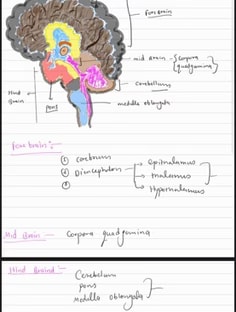 Fore brain
mid brain - {Corpora quadgamina}
cerebellum
Hind Brain
Pons
medulla oblongata
Fore brain :-
① cerebrum
② Diencephalon → epithalamus
→ thalamus
③ → Hypothalamus
Mid Brain :- Corpora quadgamina
Hind Brain :- Cerebellum
Pons
Medulla oblongata